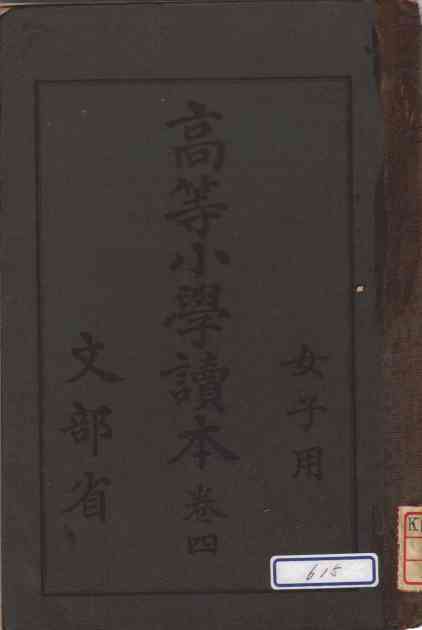 女子用
高等小學讀本 卷四
文部省
615